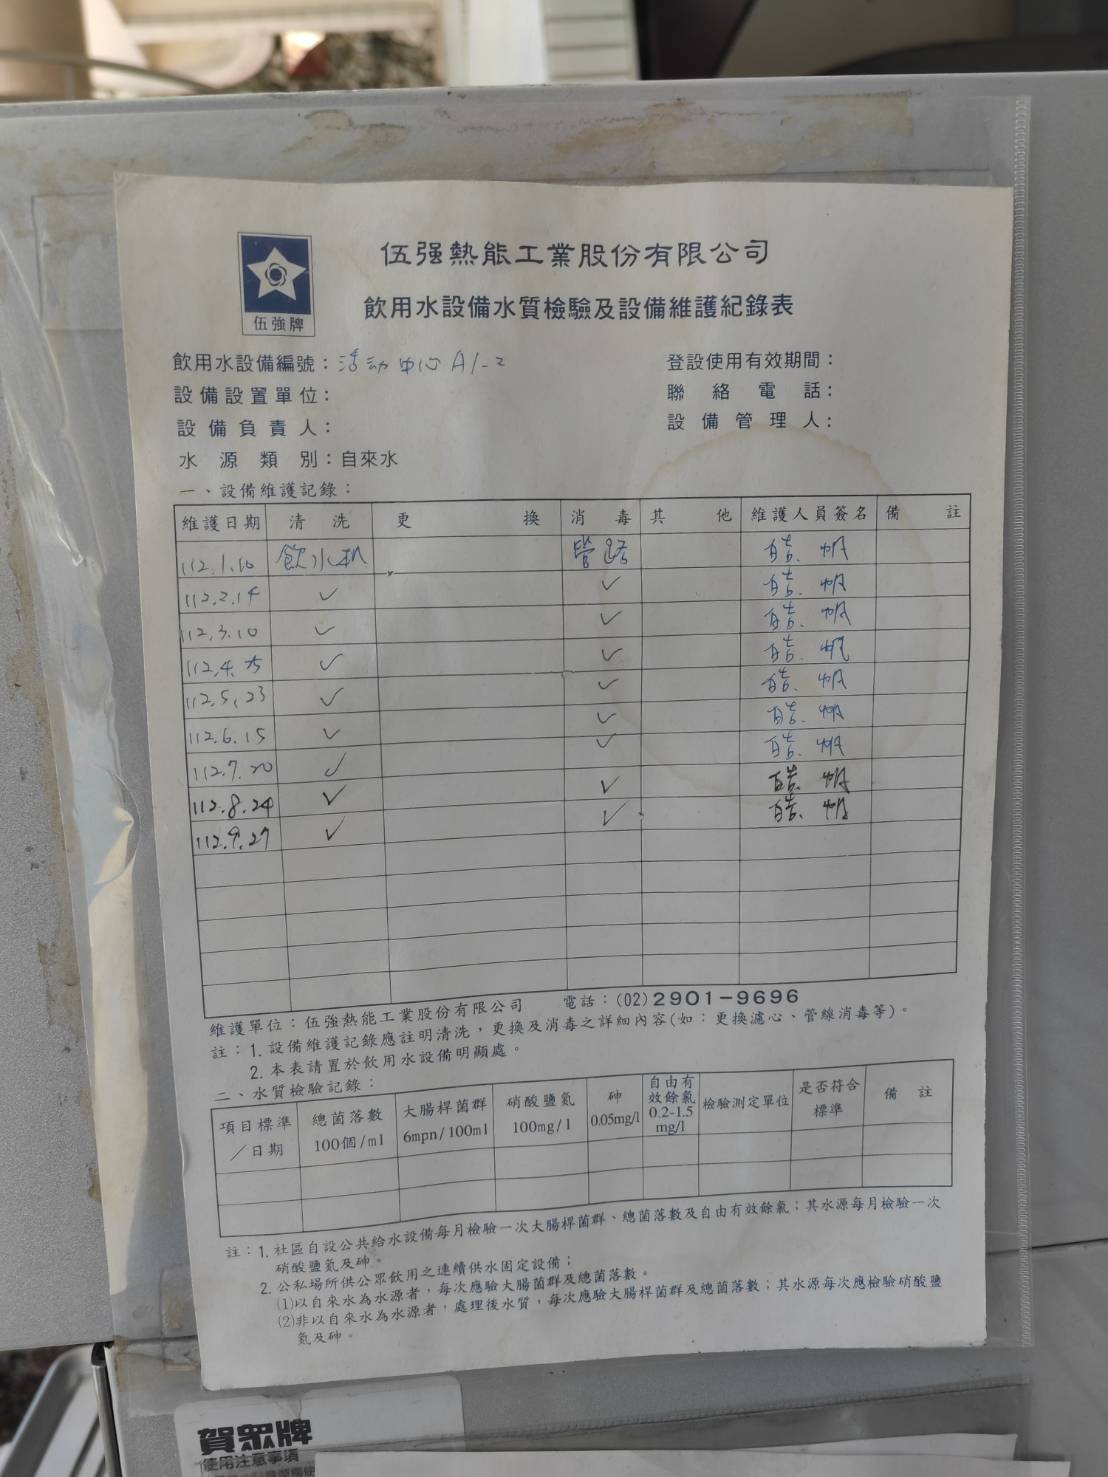 伍強牌
伍强熱能工業股份有限公司
飲用水設備水質檢驗及設備維護紀錄表
飲用水設備編號：活动中心A1-2 登設使用有效期間：
設備設置單位： 聯絡電話：
設備負責人： 設備管理人：
水源類別：自來水
一、設備維護記錄：
維護日期 清洗 更換 消毒 其他 維護人員簽名 備註
112.1.10 飲水机 管路 皓.帆
112.2.14 ✓ ✓ 皓.帆
112.3.10 ✓ ✓ 皓.帆
112.4.25 ✓ ✓ 皓.帆
112.5.23 ✓ ✓ 皓.帆
112.6.15 ✓ ✓ 皓.帆
112.7.20 ✓ ✓ 皓.帆
112.8.24 ✓ ✓ 皓.帆
112.9.27 ✓ ✓ 皓.帆
維護單位：伍強熱能工業股份有限公司 電話：(02)2901-9696
註：1.設備維護記錄應註明清洗，更換及消毒之詳細內容(如：更換濾心、管線消毒等)。
2.本表請置於飲用水設備明顯處。
二、水質檢驗記錄：
項目標準／日期 總菌落數 100個/ml 大腸桿菌群 6mpn/100ml 硝酸鹽氮 100mg/l 砷 0.05mg/l 自由有效餘氯 0.2-1.5 mg/l 檢驗測定單位 是否符合標準 備註
註：1.社區自設公共給水設備每月檢驗一次大腸桿菌群、總菌落數及自由有效餘氯；其水源每月檢驗一次
硝酸鹽氮及砷。
2.公私場所供公眾飲用之連續供水固定設備；
(1)以自來水為水源者，每次應驗大腸菌群及總菌落數。
(2)非以自來水為水源者，處理後水質，每次應驗大腸桿菌群及總菌落數；其水源每次應檢驗硝酸鹽
氮及砷。
賀眾牌
使用注意事項